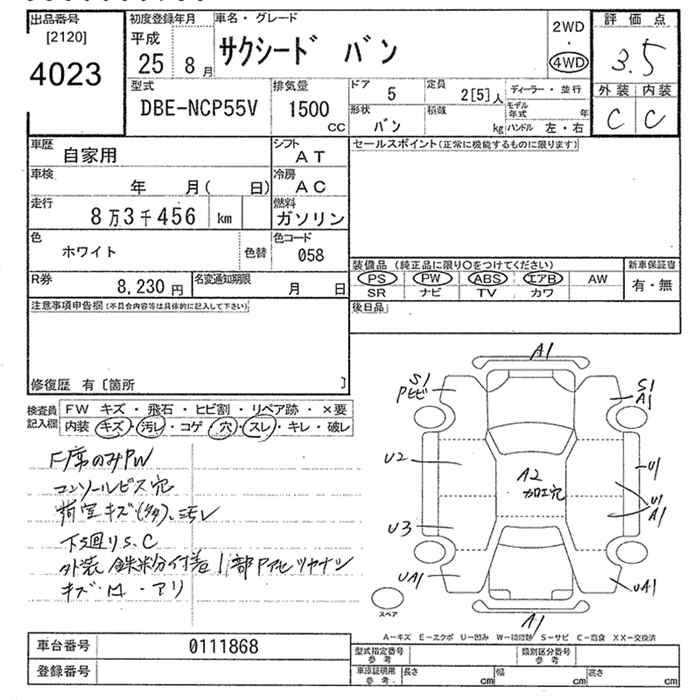 出品番号 初度登録年月 車名・グレード 2WD 評価点
[2120] 平成 サクシード バン ・ 3.5
4023 25 8月 4WD 外装 内装
型式 排気量 ドア 5 定員 2[5]人 ディーラー・並行 C C
DBE-NCP55V 1500 CC 形状 バン 積載 kg モデル年式 年
ハンドル 左・右
車歴 自家用 シフト AT セールスポイント(正常に機能するものに限ります)
車検 年 月( 日) 冷房 AC
走行 8万3千456 km 燃料 ガソリン
色 ホワイト 色替 色コード 058
装備品 (純正品に限り○をつけてください) 新車保証書
R券 8,230円 名変通知期限 月 日 PS PW ABS エアB AW 有・無
SR ナビ TV カワ
注意事項申告欄(不具合内容等は具体的に記入して下さい) 後日品
修復歴 有〔箇所 〕
検査員記入欄 FW キズ・飛石・ヒビ割・リペア跡・×要
内装 キズ・汚レ・コゲ・穴・スレ・キレ・破レ
F席のみPW
コンソールビス穴
荷室キズ(多)、汚レ
下廻りS、C
外装 鉄粉付着
キズ・凹・アリ
A1
S1 Pヒビ
S1 A1
U2
A2 加工穴
U1
U1 A1
U3
UA1
UA1
スペア
A1
A-キズ E-エクボ U-凹み S-サビ C-腐食 XX-交換済
車台番号 0111868 型式指定番号 参考 類別区分番号 参考
登録番号 車庫証明用 参考 長さ cm 幅 cm 高さ cm